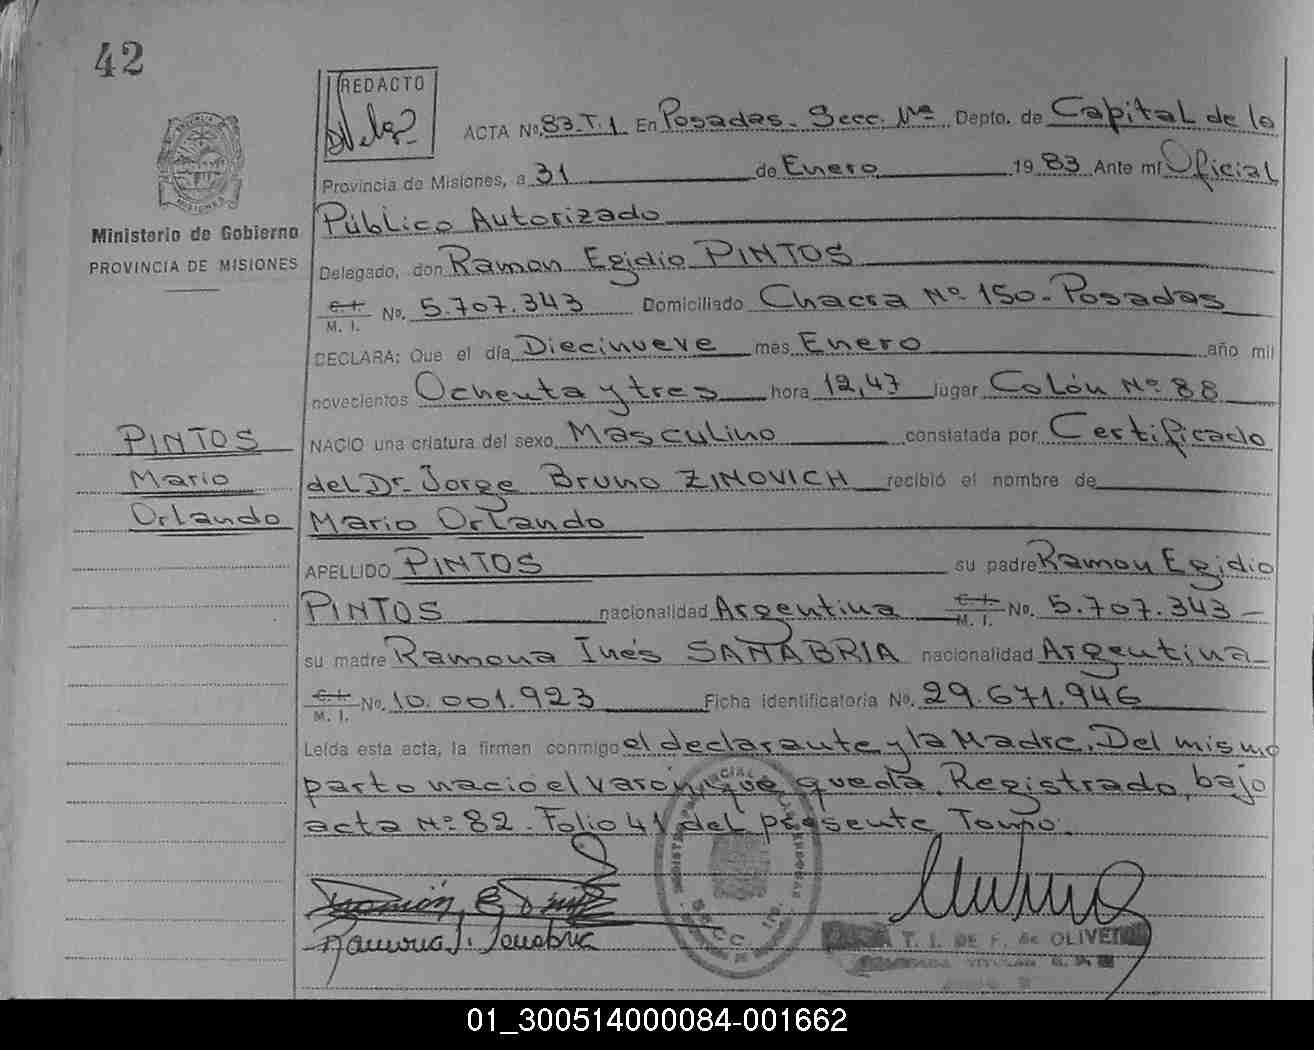 42
REDACTO
ACTA No. 83.T.1 En Posadas. Secc. Depto. de Capital de la
Provincia de Misiones, a 31 de Enero 19 83 Ante mí Oficial
Público Autorizado
Ministerio de Gobierno
PROVINCIA DE MISIONES
Delegado, don Ramon Egidio PINTOS
C. I.
M. I. No. 5.707.343 Domiciliado Chacra Nº 150. Posadas
DECLARA: Que el día Diecinueve mes Enero año mil
novecientos Ochenta y tres hora 12,47 lugar Colón Nº 88
NACIO una criatura del sexo Masculino constatada por Certificado
del Dr. Jorge Bruno ZINOVICH recibió el nombre de
Mario Orlando
PINTOS
Mario
Orlando
APELLIDO PINTOS su padre Ramon Egidio
PINTOS nacionalidad Argentina C. I. M. I. No. 5.707.343
su madre Ramona Inés SANABRIA nacionalidad Argentina
C. I.
M. I. No. 10.001.923 Ficha identificatoria No. 29.671.946
Leída esta acta, la firman conmigo el declarante y la Madre. Del mismo
parto nacio el varón, que queda, Registrado, bajo
acta Nº 82. Folio 41 del presente Tomo.
Ramona I. Sanabria
T. I. DE F. de OLIVEIRA
01_300514000084-001662